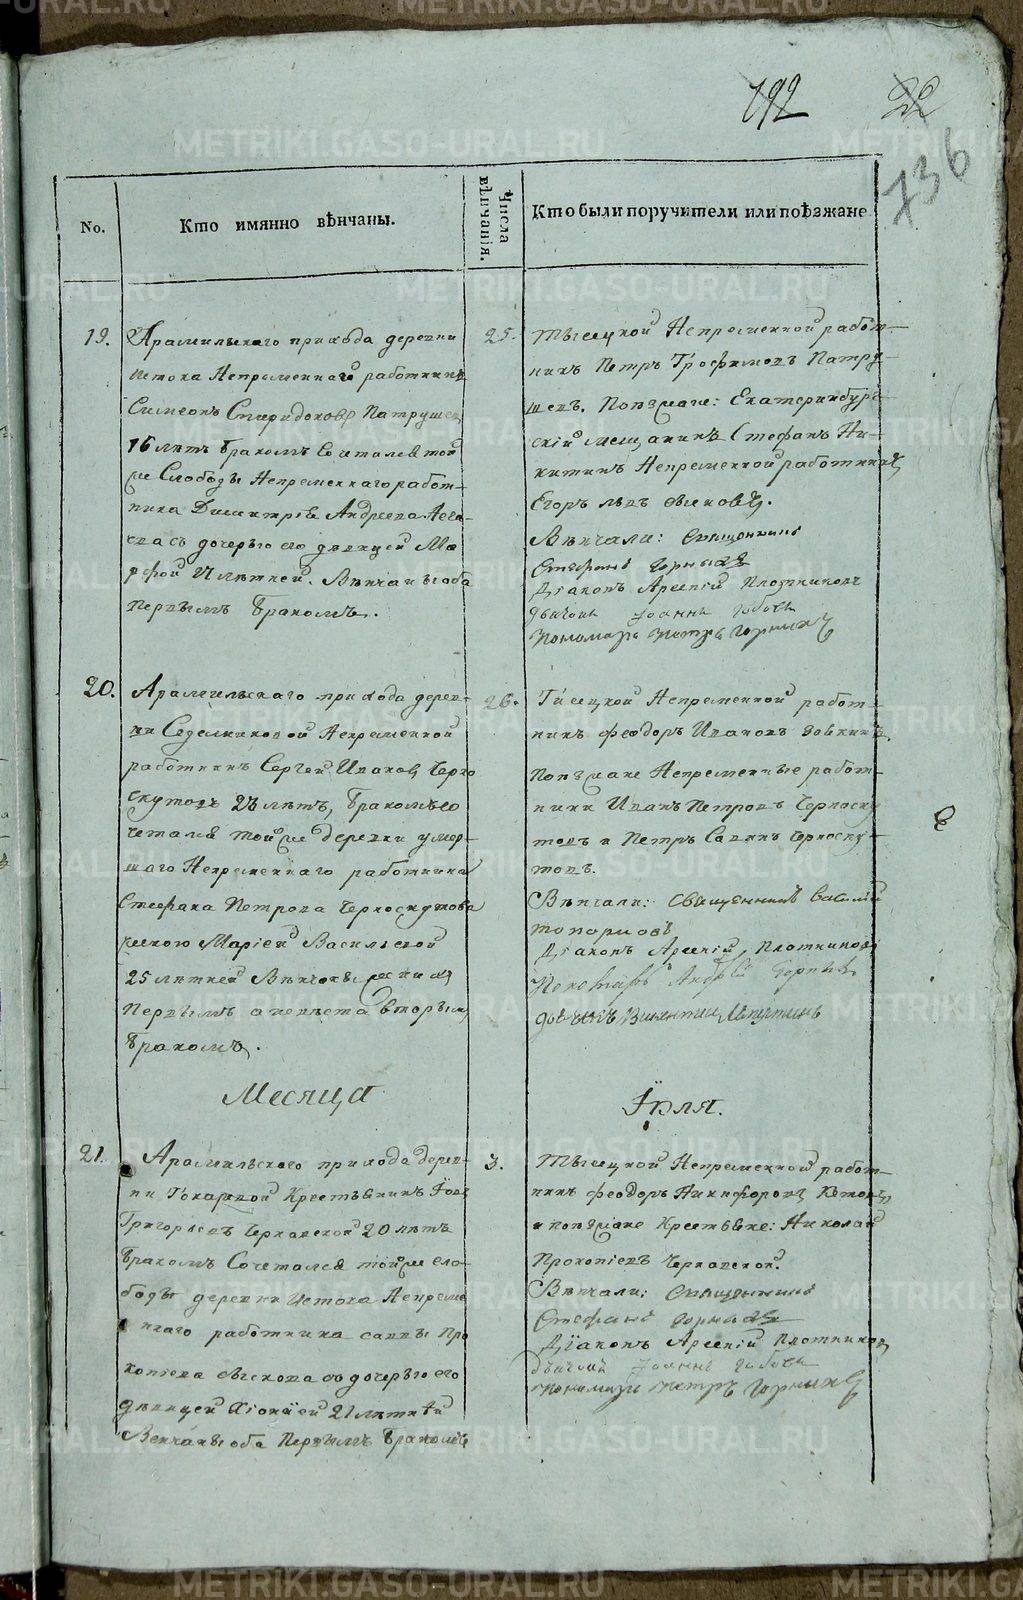 192
22
736
No.
Кто имянно вѣнчаны.
Числа вѣнчанія.
Кто были поручители или поѣзжане
19.
Арамильскаго прихода деревни
Истока Непременнаго работника
Симеонъ Спиридоновъ Патрушев
16 лѣтъ бракомъ сочетался той
же Слободы Непременнаго работ-
ника Димитрія Андреева
съ дочерью его дѣвицей Ма
рфой 21 лѣтней. Вѣнчаны оба
Первымъ бракомъ.
25.
Тысецкой Непременной работ-
никъ Петръ Трофимовъ Патру-
шевъ. Поѣзжане: Екатеринбург-
скій мещанинъ Стефанъ Ни-
китинъ Непременной работникъ
Егоръ
Вѣнчали: священникъ
Стефанъ Горныхъ
Діаконъ Арсеній Плотниковъ
дьячокъ Іоаннъ
пономарь Петръ
20.
Арамильскаго прихода дерев-
ни Седельниковой Непременной
работникъ Сергей Ивановъ Черно
скутовъ 23 лѣтъ, бракомъ со
четался той же деревни умер-
шаго Непременнаго работника
Стефана Петрова Черноскутова
женою Маріей Васильевой
25 лѣтней Вѣнчаны женихъ
Первымъ а невѣста вторымъ
бракомъ.
26.
Тисецкой Непременной работ-
никъ Феодоръ Ивановъ
Поѣзжане Непременные работ-
ники Иванъ Петровъ Черноску
товъ и Петръ Саввинъ Черноску-
товъ.
Вѣнчали: священникъ Василій
Топорковъ
Діаконъ Арсеній Плотниковъ
Пономарь Андрей
дьячекъ Викентий
Месяца
Іюля.
21.
Арамильскаго прихода дерев-
ни Токаревой Крестьянинъ Іовъ
Григорьевъ Чернавской 20 лѣтъ
бракомъ Сочетался той же сло-
боды деревни Истока Непреме
ннаго работника Саввы Про
копіева съ дочерью его
дѣвицей Хіонiей 21 лѣтней
Венчаны оба Первымъ бракомъ
3.
Тысецкой Непременной работ-
никъ Феодоръ Никифоровъ
и поѣзжане Крестьяне: Николай
Прокопіевъ Чернавской.
Вѣнчали: священникъ
Стефанъ Горныхъ
Діаконъ Арсеній Плотников
дьячекъ Іоаннъ
пономарь Петръ